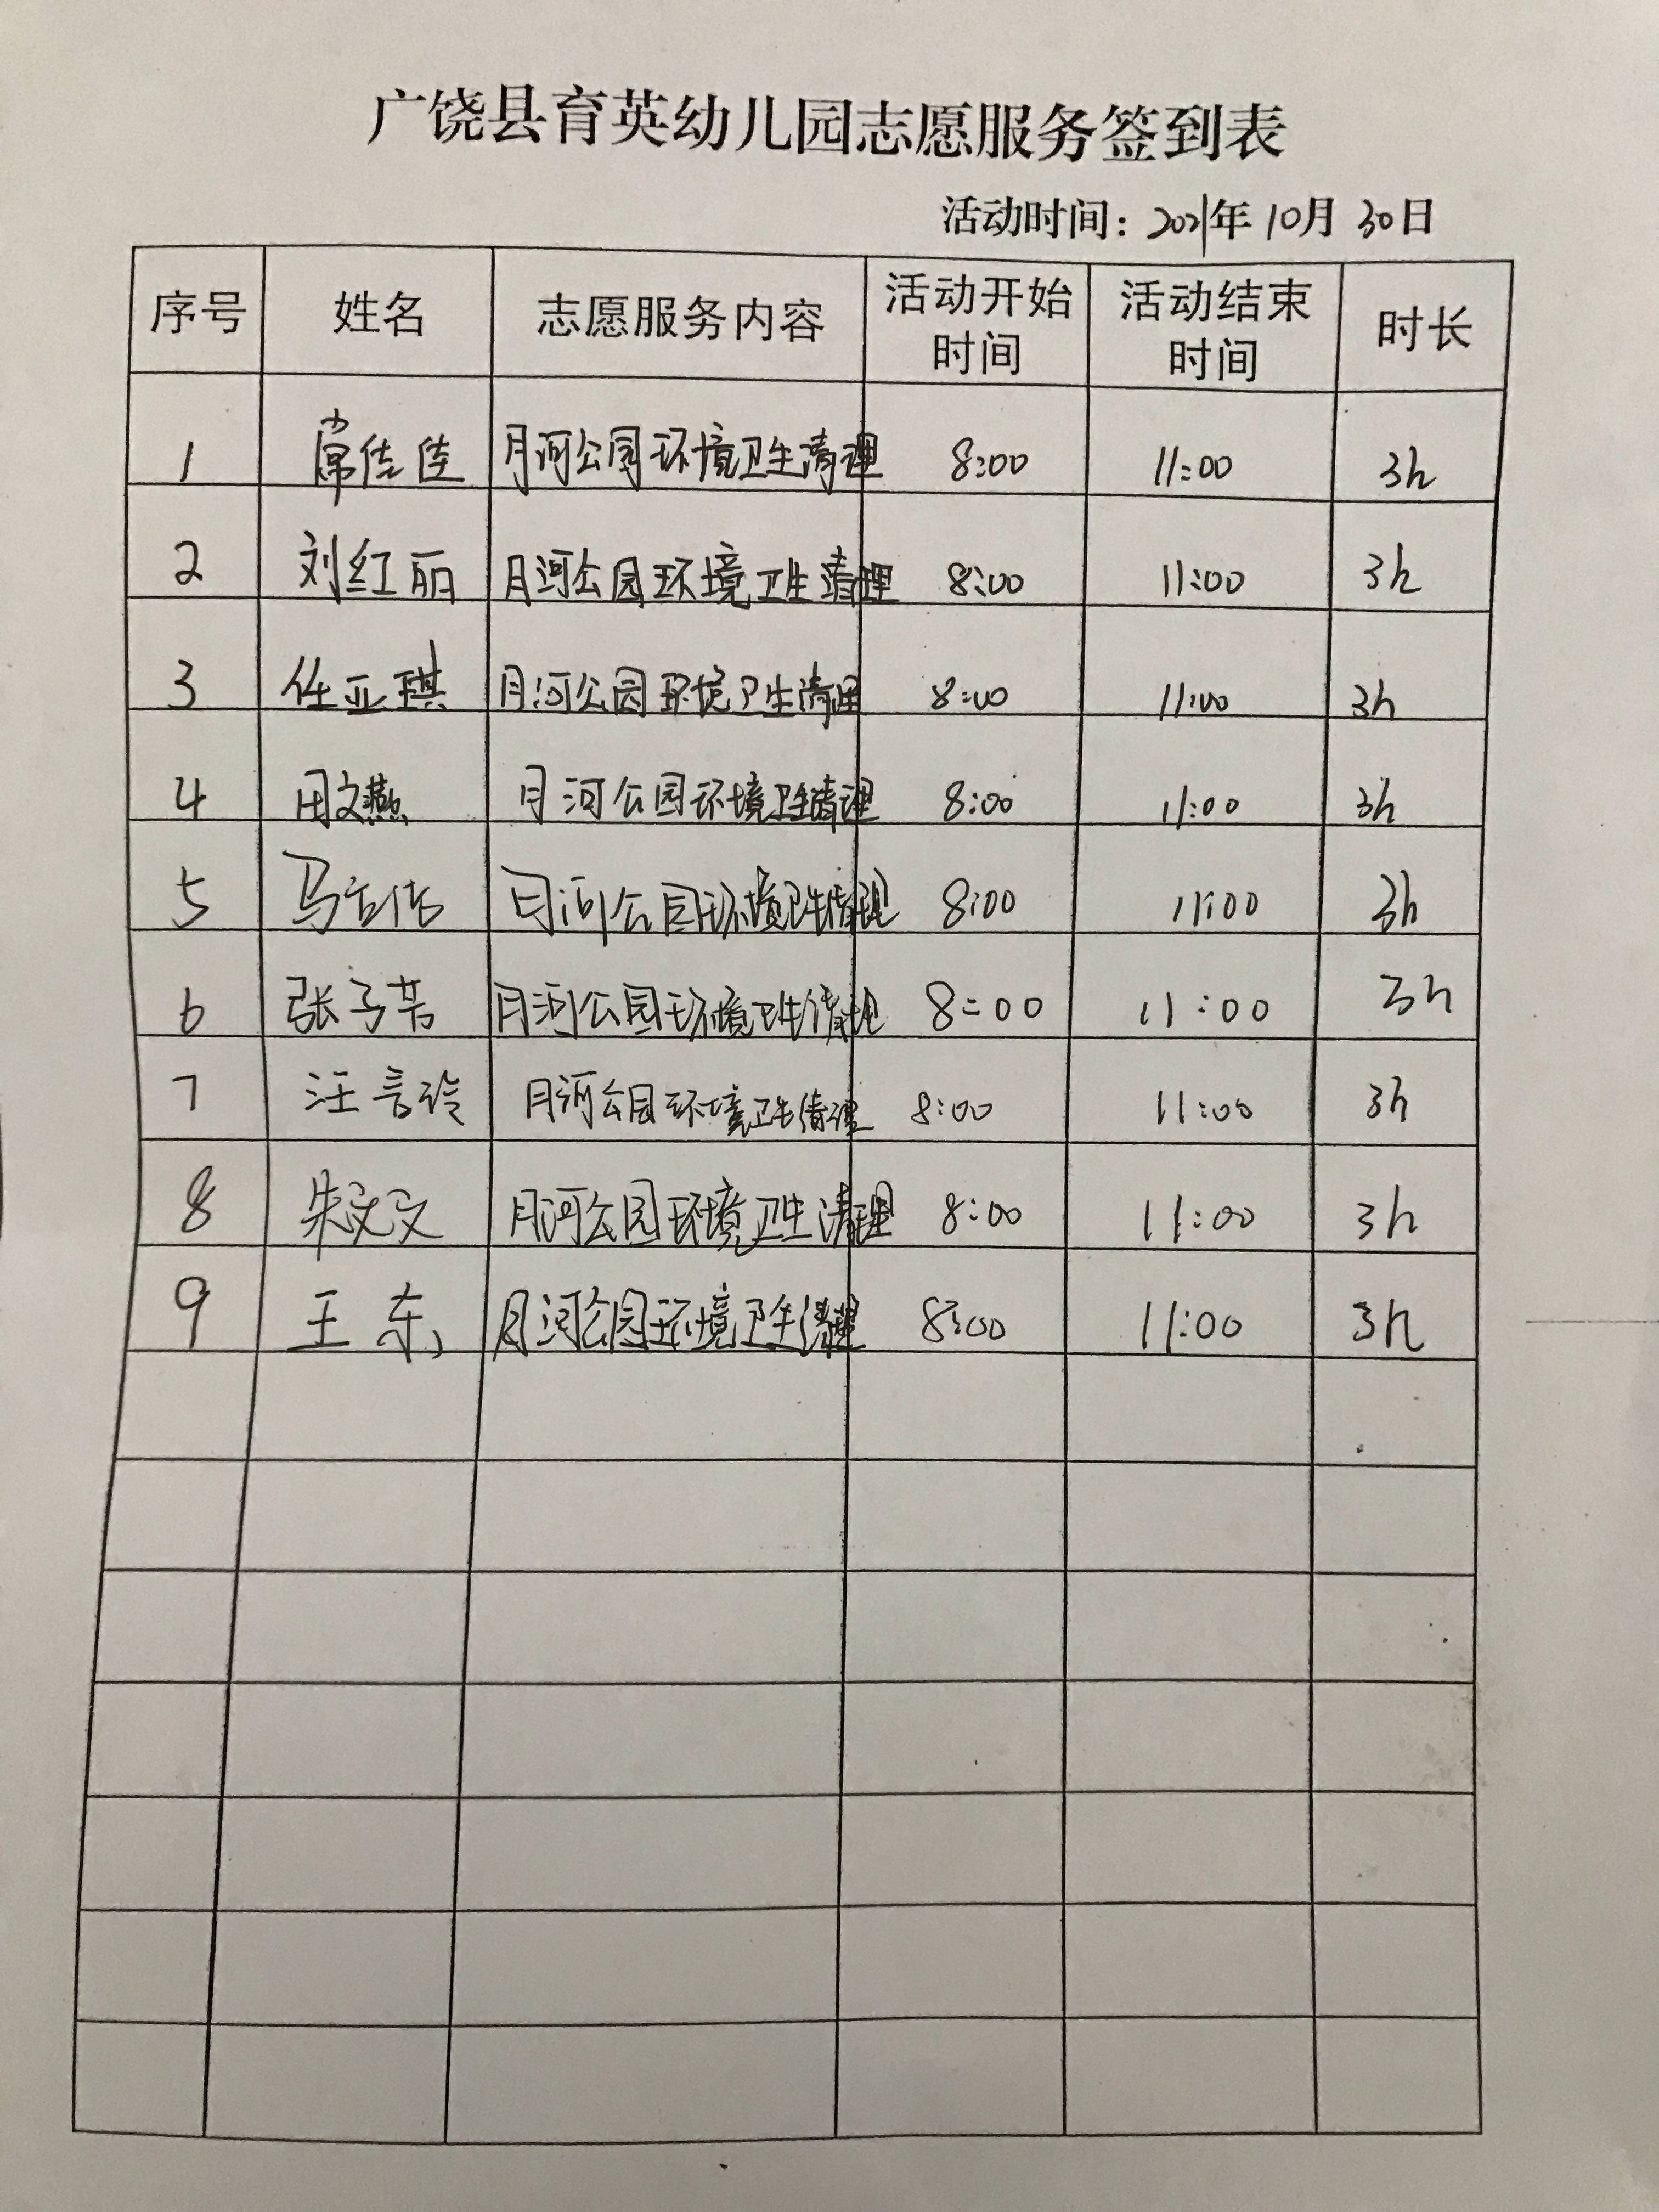 广饶县育英幼儿园志愿服务签到表
活动时间：2021年10月30日
序号 姓名 志愿服务内容 活动开始时间 活动结束时间 时长
1 常佳佳 月河公园环境卫生清理 8:00 11:00 3h
2 刘红丽 月河公园环境卫生清理 8:00 11:00 3h
3 任亚琪 月河公园环境卫生清理 8:00 11:00 3h
4 周文燕 月河公园环境卫生清理 8:00 11:00 3h
5 月河公园环境卫生清理 8:00 11:00 3h
6 张子芳 月河公园环境卫生清理 8:00 11:00 3h
7 汪言玲 月河公园环境卫生清理 8:00 11:00 3h
8 朱文文 月河公园环境卫生清理 8:00 11:00 3h
9 王东 月河公园环境卫生清理 8:00 11:00 3h